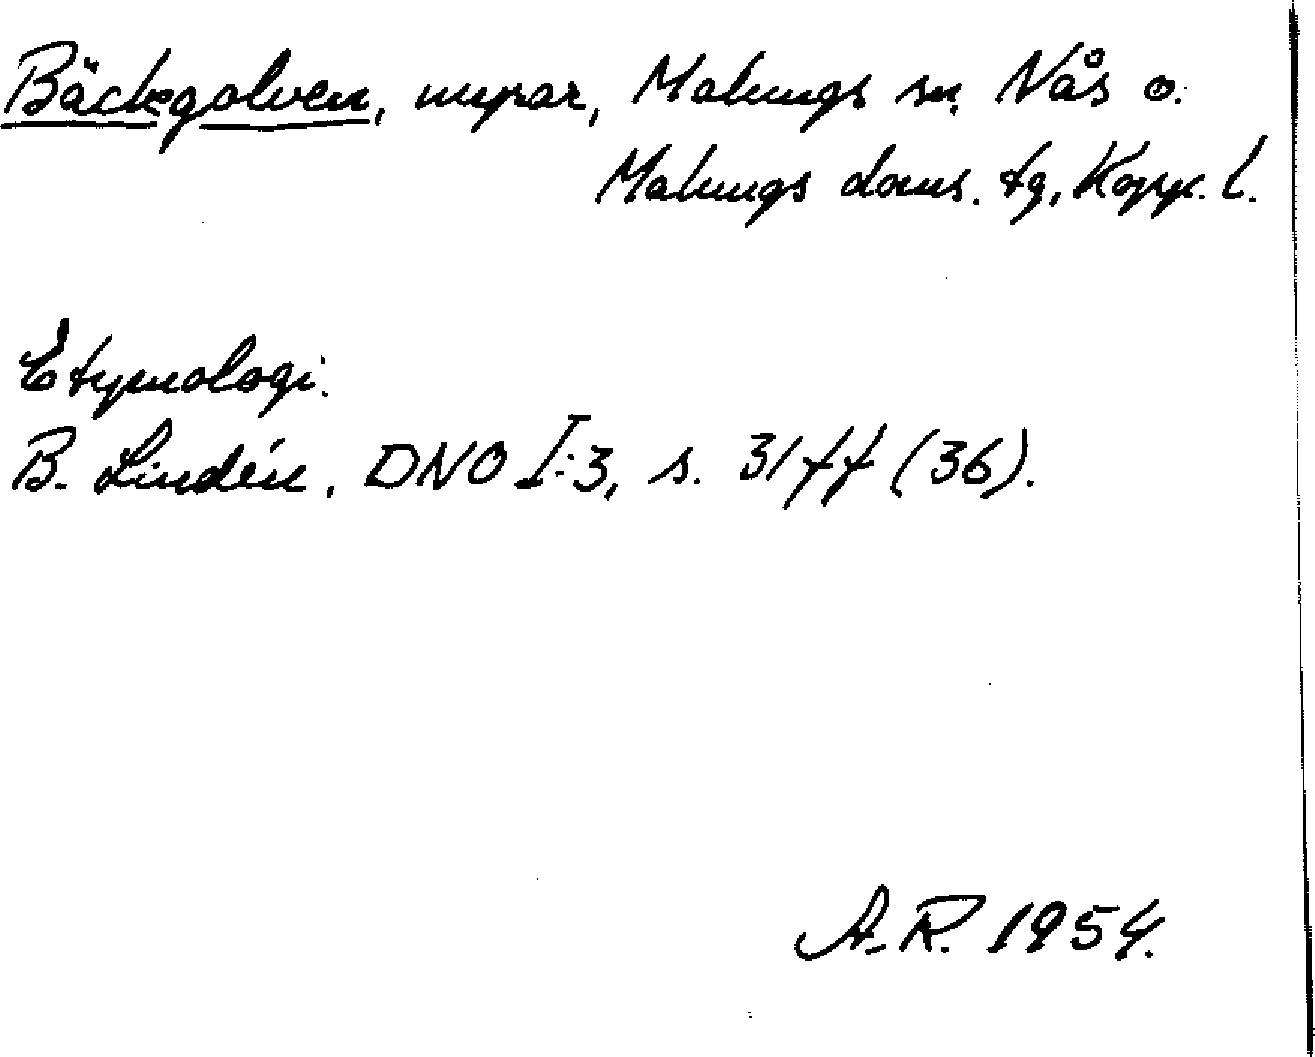 Bäckegolven, myrar, Malungs sn, Nås o.
Malungs doms. tg, Kopp. l.
Etymologi.
B. Lindén, DNO I:3, s. 31ff (36).
A.R. 1954.